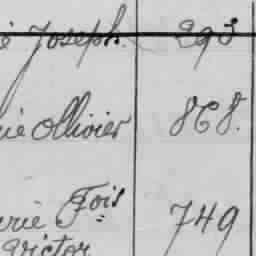 é Joseph. 293
rie Ollivier 868.
Fois
erie 749
Victor